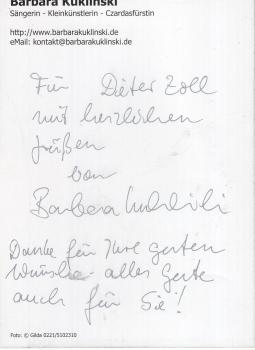 Barbara Kuklinski
Sängerin - Kleinkünstlerin - Czardasfürstin
http://www.barbarakuklinski.de
eMail: kontakt@barbarakuklinski.de
Für Dieter Zoll
mit herzlichen
Grüßen
von
Barbara Kuklinski
Danke für Ihre guten
Wünsche alles Gute
auch für Sie!
Foto: © Gilda 0221/5102310